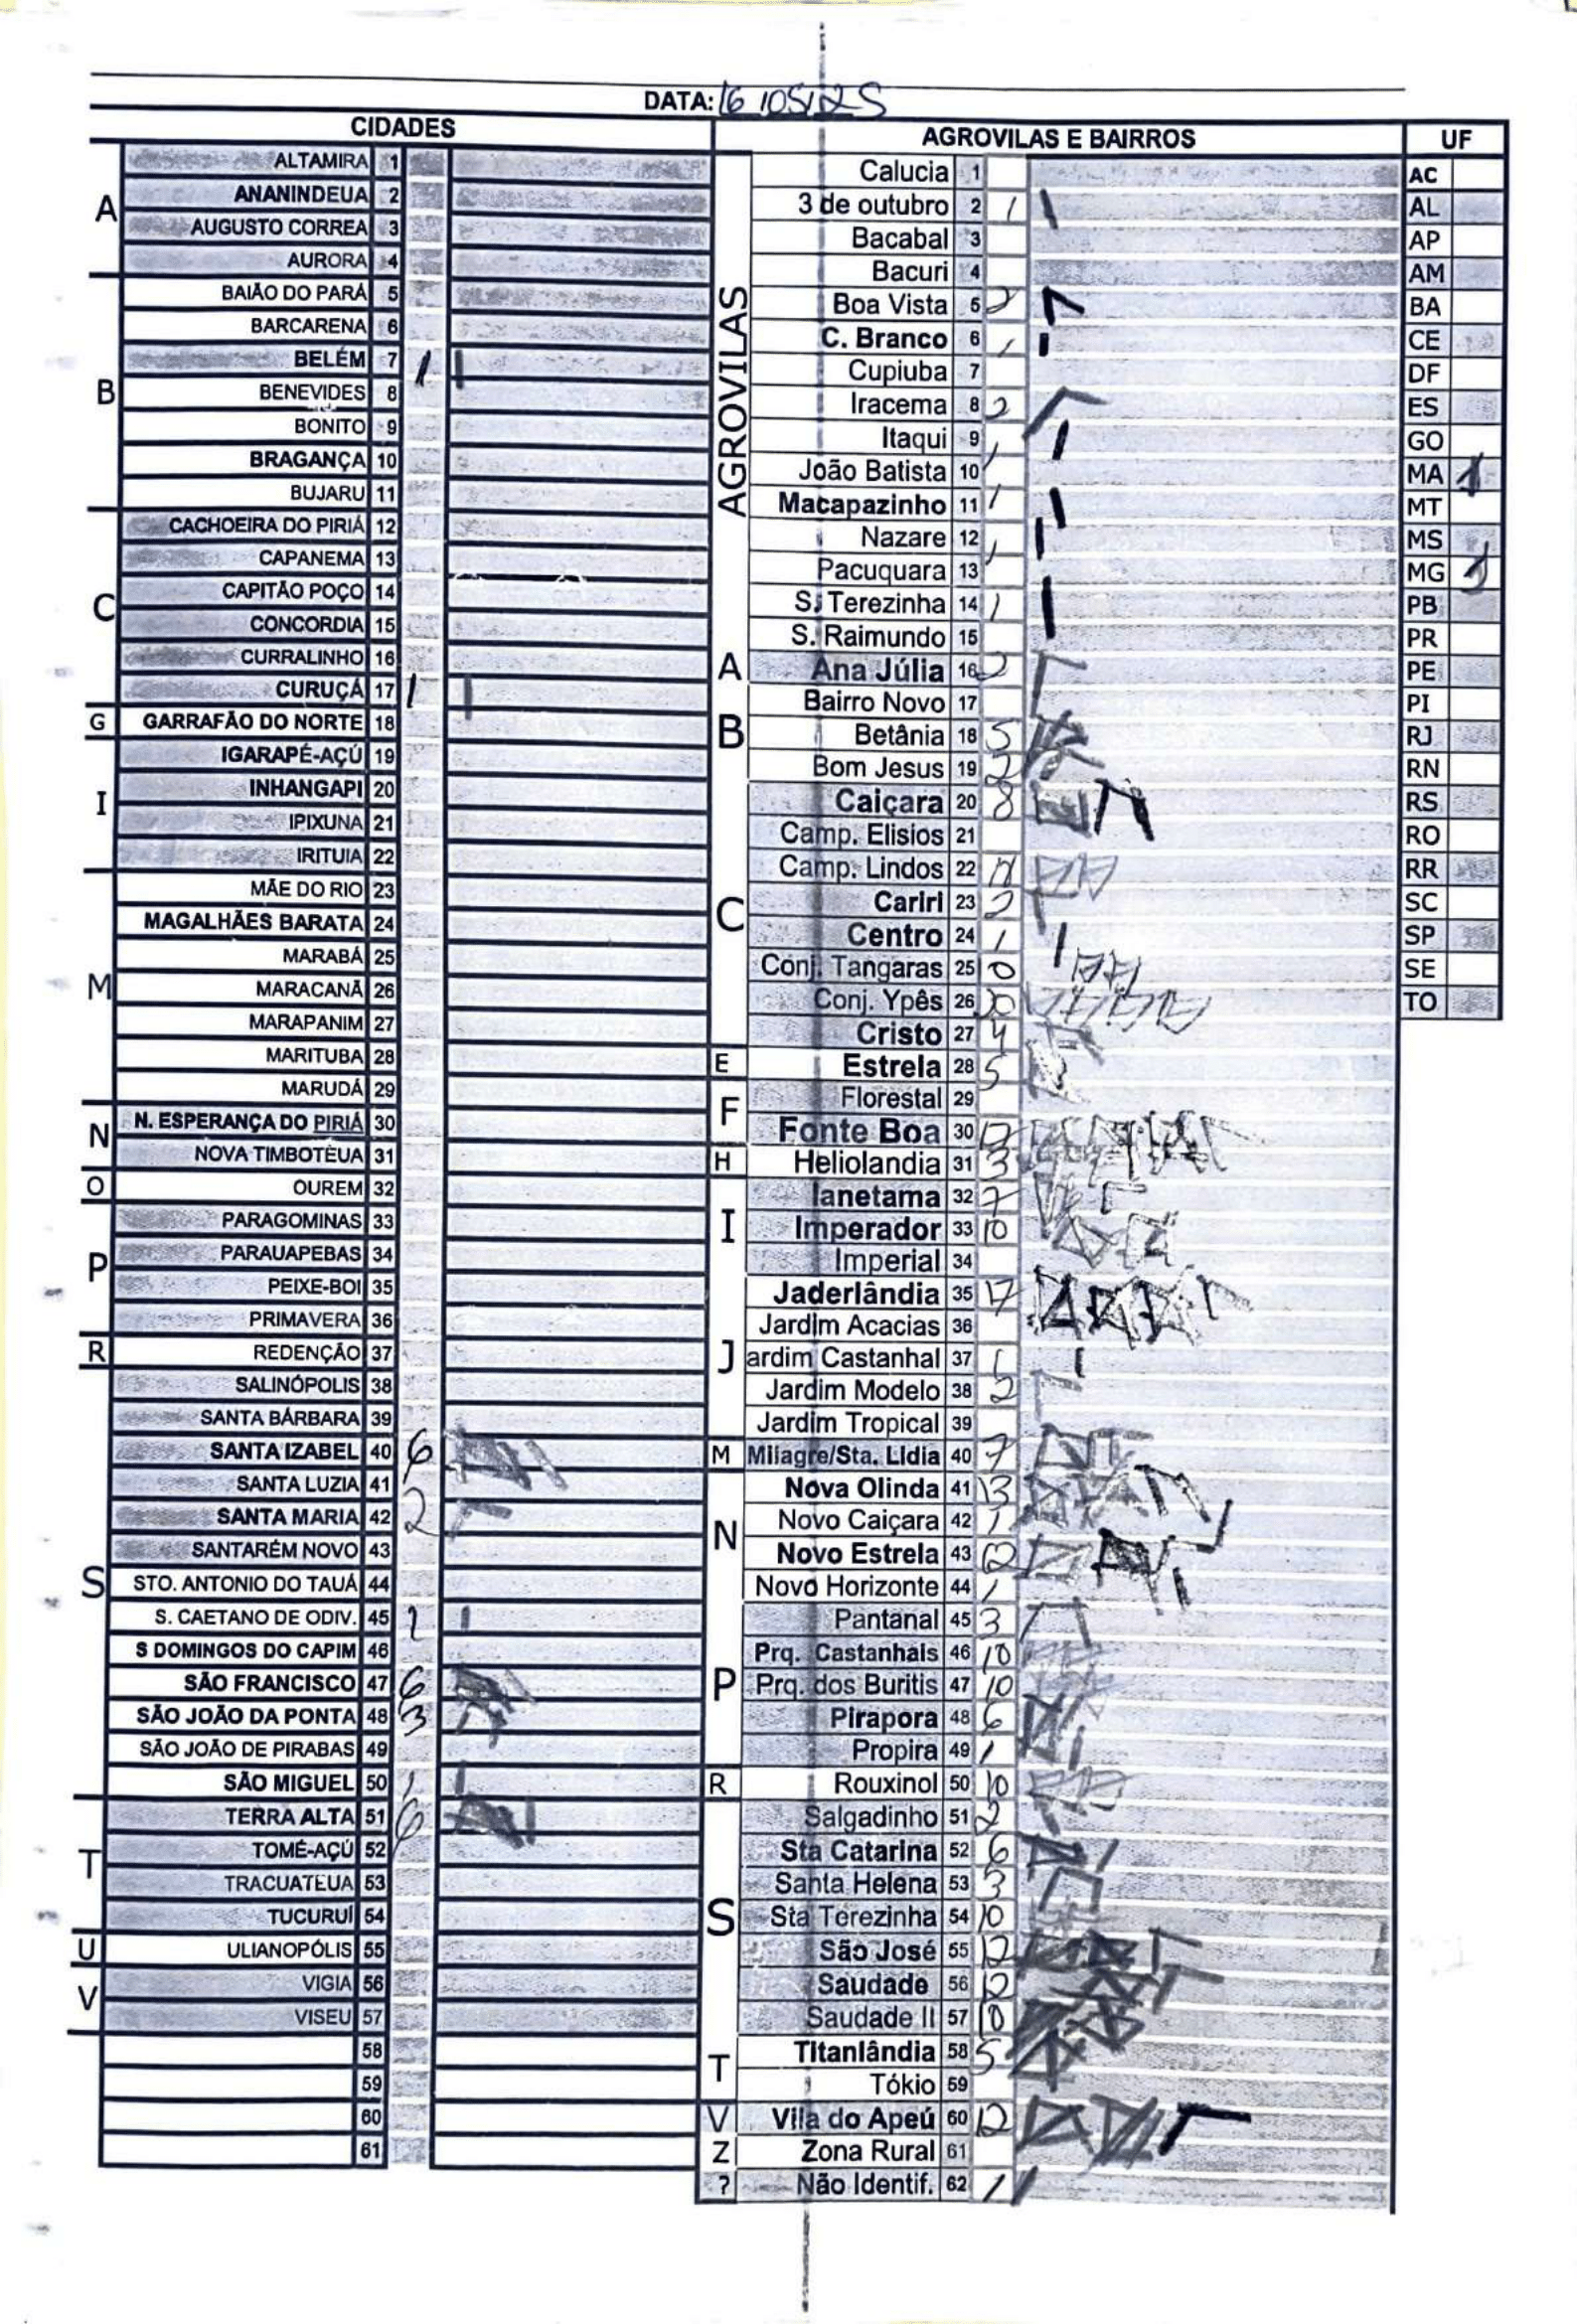 DATA: 16/05/25
CIDADES
A
ALTAMIRA 1
ANANINDEUA 2
AUGUSTO CORREA 3
AURORA 4
B
BAIÃO DO PARÁ 5
BARCARENA 6
BELÉM 7 1
BENEVIDES 8
BONITO 9
BRAGANÇA 10
BUJARU 11
C
CACHOEIRA DO PIRIÁ 12
CAPANEMA 13
CAPITÃO POÇO 14
CONCORDIA 15
CURRALINHO 16
CURUÇÁ 17 1
G GARRAFÃO DO NORTE 18
I
IGARAPÉ-AÇÚ 19
INHANGAPI 20
IPIXUNA 21
IRITUIA 22
M
MÃE DO RIO 23
MAGALHÃES BARATA 24
MARABÁ 25
MARACANÃ 26
MARAPANIM 27
MARITUBA 28
MARUDÁ 29
N
N. ESPERANÇA DO PIRIÁ 30
NOVA TIMBOTÉUA 31
O OUREM 32
P
PARAGOMINAS 33
PARAUAPEBAS 34
PEIXE-BOI 35
PRIMAVERA 36
R REDENÇÃO 37
S
SALINÓPOLIS 38
SANTA BÁRBARA 39
SANTA IZABEL 40 6
SANTA LUZIA 41
SANTA MARIA 42 2
SANTARÉM NOVO 43
STO. ANTONIO DO TAUÁ 44
S. CAETANO DE ODIV. 45 1
S DOMINGOS DO CAPIM 46
SÃO FRANCISCO 47 6
SÃO JOÃO DA PONTA 48 3
SÃO JOÃO DE PIRABAS 49
SÃO MIGUEL 50 1
T
TERRA ALTA 51 6
TOMÉ-AÇÚ 52
TRACUATEUA 53
TUCURUÍ 54
U ULIANOPÓLIS 55
V
VIGIA 56
VISEU 57
58
59
60
61
AGROVILAS E BAIRROS
AGROVILAS
Calucia 1
3 de outubro 2 1
Bacabal 3
Bacuri 4
Boa Vista 5 2
C. Branco 6 1
Cupiuba 7
Iracema 8 2
Itaqui 9 1
João Batista 10
Macapazinho 11 1
Nazare 12 1
Pacuquara 13
S. Terezinha 14 1
S. Raimundo 15
A Ana Júlia 16 2
Bairro Novo 17
B Betânia 18 5
Bom Jesus 19 2
C
Caiçara 20 8
Camp. Elisios 21
Camp. Lindos 22
Cariri 23 2
Centro 24 1
Conj. Tangaras 25
Conj. Ypês 26
Cristo 27 4
E Estrela 28 5
F
Florestal 29
Fonte Boa 30 17
H Heliolandia 31 3
I
Ianetama 32 7
Imperador 33 10
Imperial 34
J
Jaderlândia 35 17
Jardim Acacias 36
ardim Castanhal 37 1
Jardim Modelo 38 2
Jardim Tropical 39
M Milagre/Sta. Lidia 40 7
N
Nova Olinda 41 13
Novo Caiçara 42 1
Novo Estrela 43 12
Novo Horizonte 44 1
P
Pantanal 45 3
Prq. Castanhais 46 10
Prq. dos Buritis 47 10
Pirapora 48 6
Propira 49 1
R Rouxinol 50 10
S
Salgadinho 51 2
Sta Catarina 52 6
Santa Helena 53 3
Sta Terezinha 54 10
São José 55 12
Saudade 56 12
Saudade II 57 10
T
Titanlândia 58 5
Tókio 59
V Vila do Apeú 60 12
Z Zona Rural 61
? Não Identif. 62 1
UF
AC
AL
AP
AM
BA
CE
DF
ES
GO
MA 1
MT
MS
MG 1
PB
PR
PE
PI
RJ
RN
RS
RO
RR
SC
SP
SE
TO